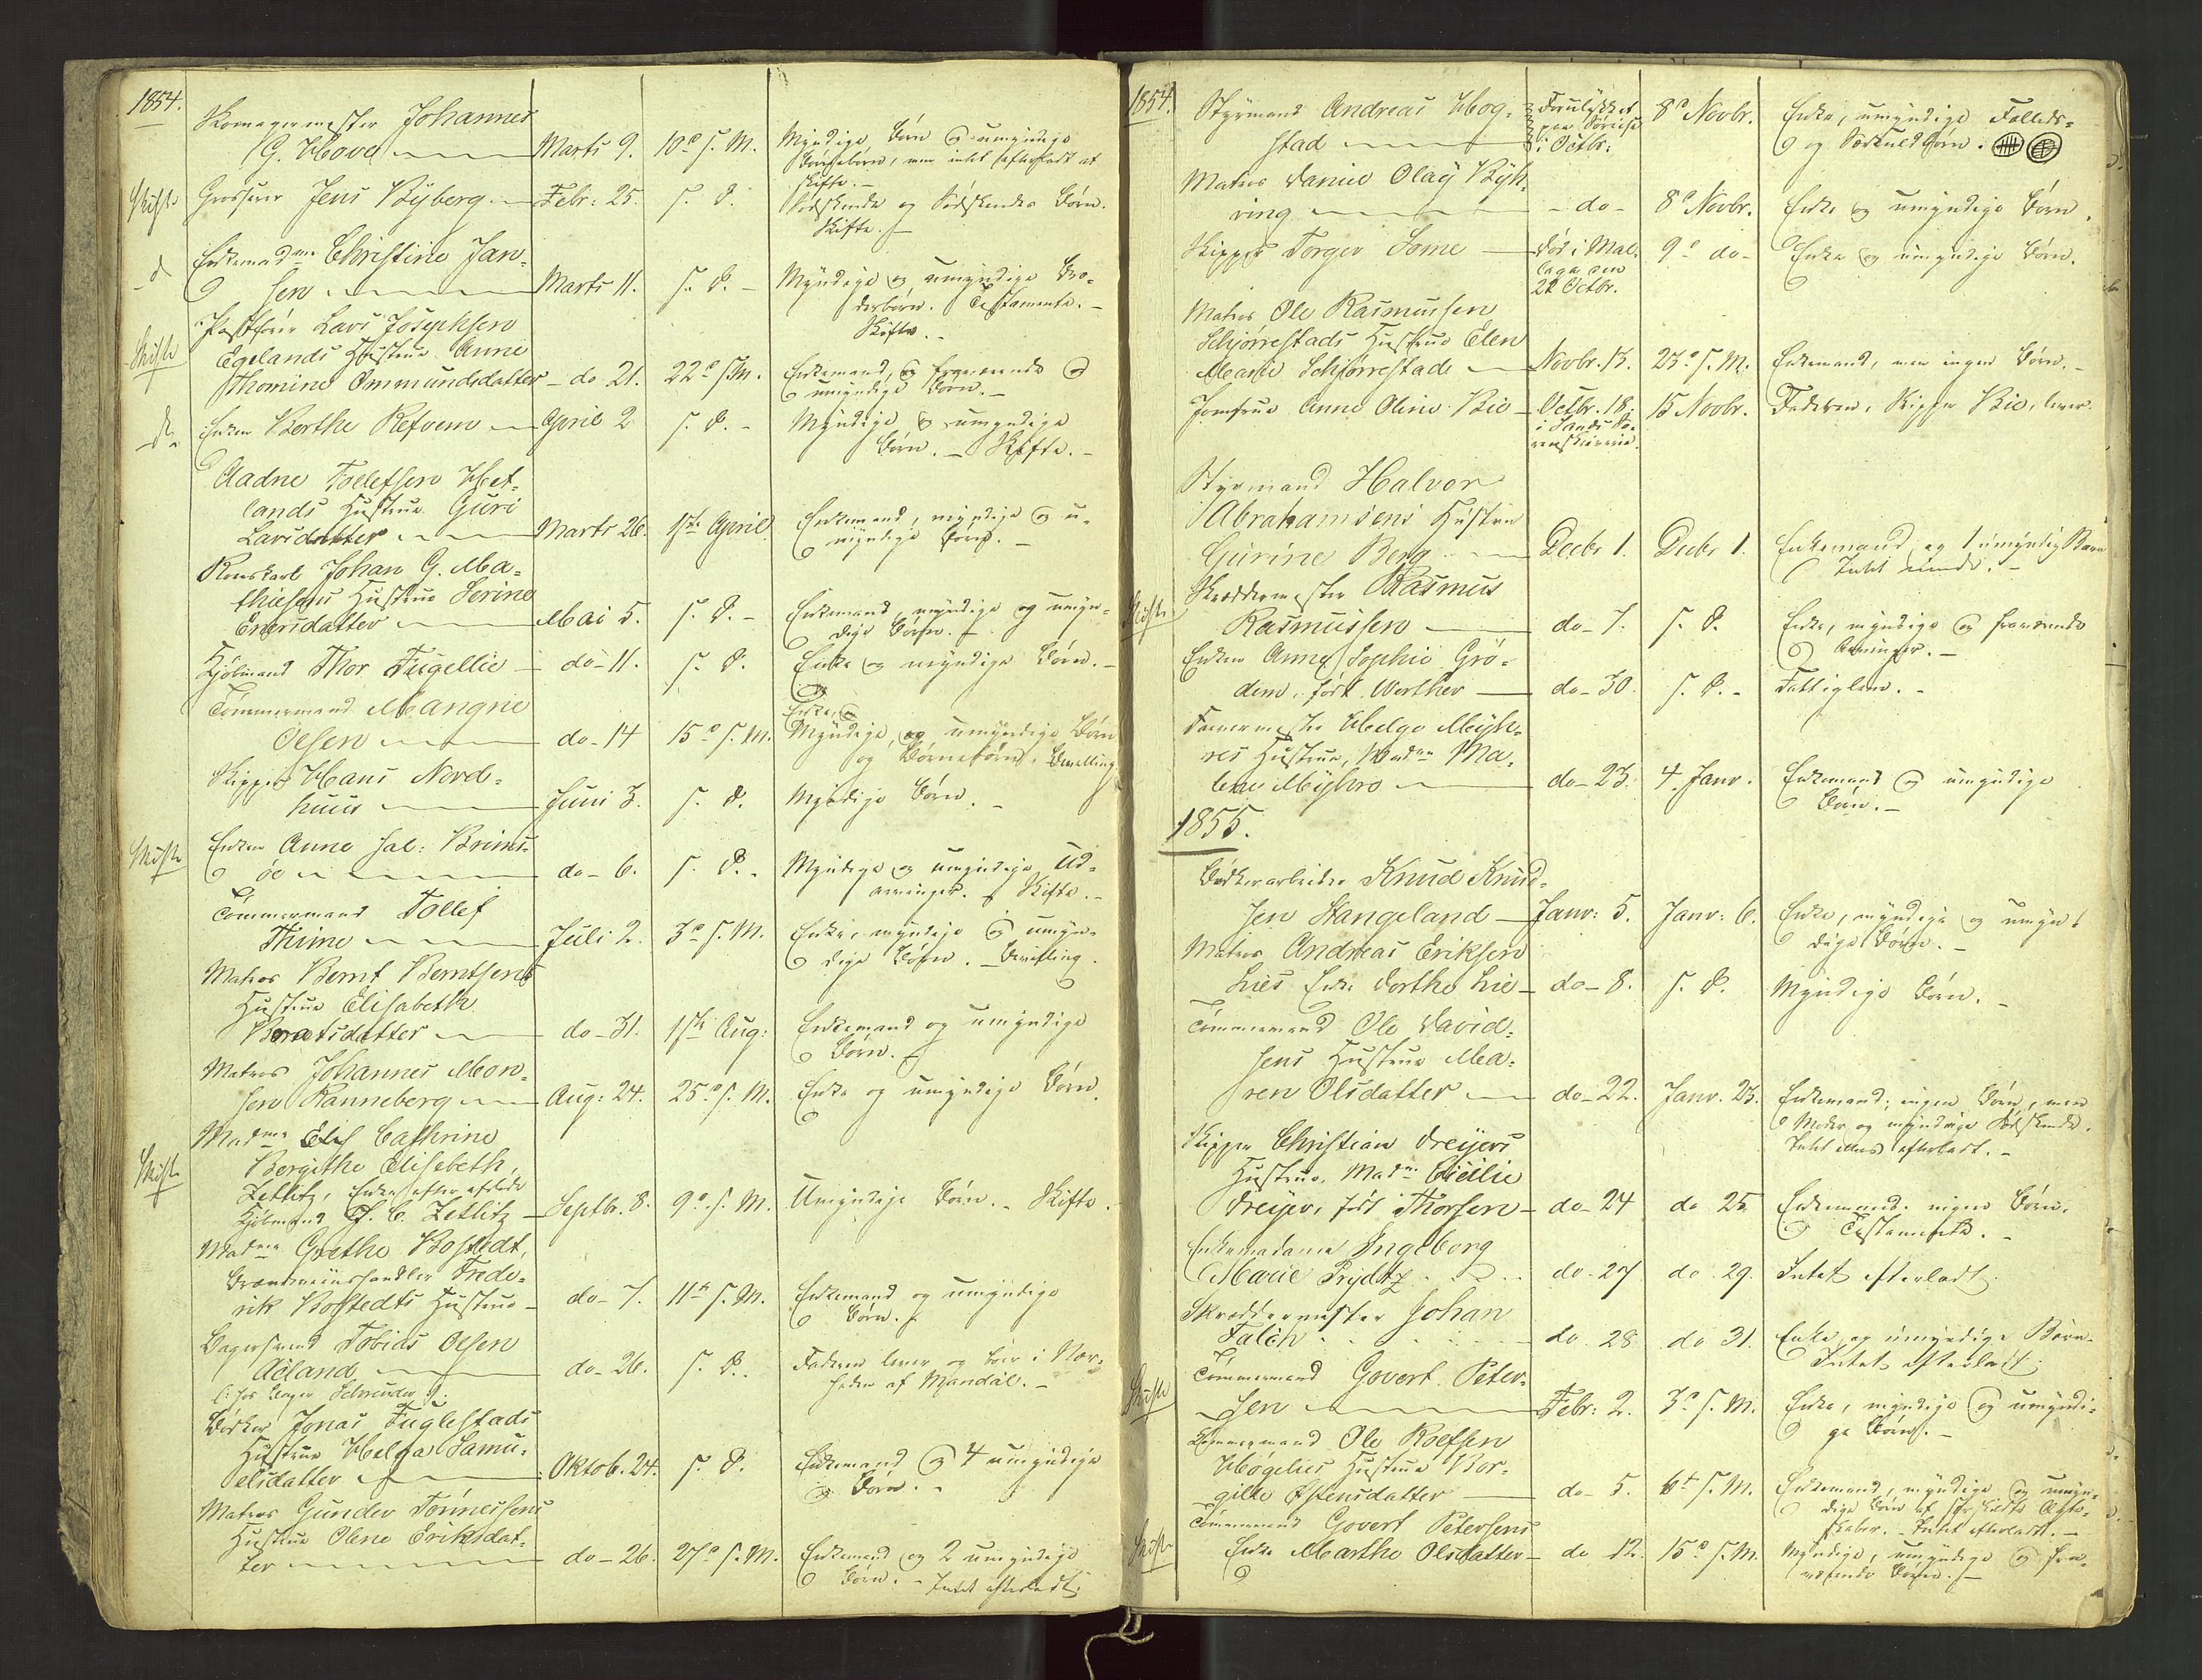 1854.
Johannes
G. Hove Marts 9. 10de s. M. Myndige Børn og umyndige
Børnebørn, men intet efterladt at
skifte.
Skifte Jens Byberg Febr: 25. s. D. Sødskende og Sødskendes Børn.
Skifte.
do Enkemadme Christine Jan-
sen Marts 11. s. D. Myndige og umyndige Bro-
derbørn. Testamente.
Skifte.
Lars Josephsen
Skifte Egelands Hustrue Anne
Thomine Ommundsdatter do 21. 22de s. M. Enkemand, og fraværende og
umyndige Børn.
do Enken Berthe Refvem April 2 s. D. Myndige og umyndige
Børn. Skifte.
Aadne Tollefsen Het-
lands Hustrue Guri
Larsdatter Marts 26. 1ste April Enkemand, myndige og u-
myndige Børn.
Johan G. Ma-
thiesens Hustrue Serine
Enersdatter Mai 5. s. D. Enkemand, myndige og umyn-
dige Børn.
Kjøbmand Thor Fugellie do 11. s. D. Enke og myndige Børn.
Tømmermand Mangne Enke og
Olsen do 14 15de s. M. Myndige, og umyndige Børn
og Børnebørn. Bevilling
Skipper Hans Nord-
huus Juni 3. s. D. Myndige Børn.
Skifte Enken Anne sal: Brims-
øe do 6. s. D. Myndige og umyndige Ud-
arvinger. Skifte.
Tømmermand Tollef
Thime Juli 2. 3de s. M. Enke, myndige og umyn-
dige Børn. Bevilling.
Matros Bernt Berntsens
Hustrue Elisabeth
Berntsdatter do 31. 1ste Aug: Enkemand og umyndige
Børn.
Matros Johannes Mon-
sen Ranneberg Aug: 24. 25de s. M. Enke og umyndige Børn.
Madme Elis Cathrine
Skifte Bergithe Elisebeth
Zetlitz, Enke efter afdøde
Kjøbmand C. Zetlitz Septbr. 8. 9de s. M. Umyndige Børn. Skifte.
Madme Grethe Bostedt,
Brændeviinshandler Frede-
rik Bostedts Hustrue do 7. 11te s. M. Enkemand og umyndige
Børn.
Bagersvend Tobias Olsen
Aeland do 26. s. D. Faderen lever og boer i Nær-
heden af Mandal.
(: hos Bager Schreuder :)
Bødker Jonas Fuglestads
Hustrue Helga Samu-
elsdatter Oktob. 24. s. D. Enkemand og 4 umyndige
Børn.
Matros Gunder Tønnessens
Hustrue Olene Eriksdat-
ter do 26. 27de s. M. Enkemand og 2 umyndige
Børn. Intet efterladt.
1854.
Styrmand Andreas Hog-
stad Forulykket
paa Søreise
i Octbr: 8de Novbr. Enke, umyndige Fælleds-
og Særkuldbørn.
Matros Daniel Olay Byh-
ring do 8de Novbr. Enke og umyndige Børn.
Skipper Torger Some død i Mal-
laga den
22 Octbr. 9de do Enke og umyndige Børn.
Matros Ole Rasmussen
Schjørrestads Hustrue Elen
Marie Schjørrestad Novbr. 13. 23de s. M. Enkemand, men ingen Børn.
Jomfrue Anne Oline Bie Octbr. 18
i Sands So-
renskriverie. 15 Novbr. Faderen, Skipper Bie, lever.
Styrmand Halvor
Abrahamsens Hustru
Gurine Berg Decbr 1. Decbr 1. Enkemand og 1 umyndig Barn
Intet
Skifte Skreddermester Rasmus
Rasmussen do 7. s. D. Enke, myndige og fraværende
Arvinger.
Enken Anne Sophie Grø-
dem, født Werther do 30. s. D. Fattiglem.
Farvermester Helge Myh-
res Hustrue, Madme Ma-
lene Myhre do 23. 4. Janv. Enkemand og umyndige
Børn.
1855.
Bødkerarbeider Knud Knud-
sen Stangeland Janv: 5. Janv: 6. Enke, myndige og umyn-
dige Børn.
Matros Andreas Eriksen
Lies Enke Dorthe Lie do 8. s. D. Myndige Børn.
Tømmermand Ole David-
sens Hustrue Ma-
ren Olsdatter do 22. Janv. 23. Enkemand; ingen Børn, men
Moder og myndige Sødskende.
Intet efterladt.
Skipper Christian Dreyers
Hustrue, Madme Cicilie
Dreyer, født Thorsen do 24 do 25 Enkemand. ingen Børn.
Testamente.
Enkemadame Ingeborg
Marie Prydtz do 27 do 29. Intet efterladt.
Skreddermester Johan
Falch do 28 do 31. Enke og umyndige Børn.
Intet efterladt.
Skifte Tømmermand Govert Peter-
sen Febr: 2. 3de s. M. Enke, myndige og umyndi-
ge Børn.
Tømmermand Ole Roefsen
Høgelies Hustrue Bor-
gille Østensdatter do 5. 6te s. M. Enkemand, myndige og umyn-
dige Børn af Ægte-
skaber. Intet efterladt.
Skifte Tømmermand Govert Petersens
Enke Marthe Olsdatter do 12. 15de s. M. Myndige, umyndige og fra-
værende Børn.